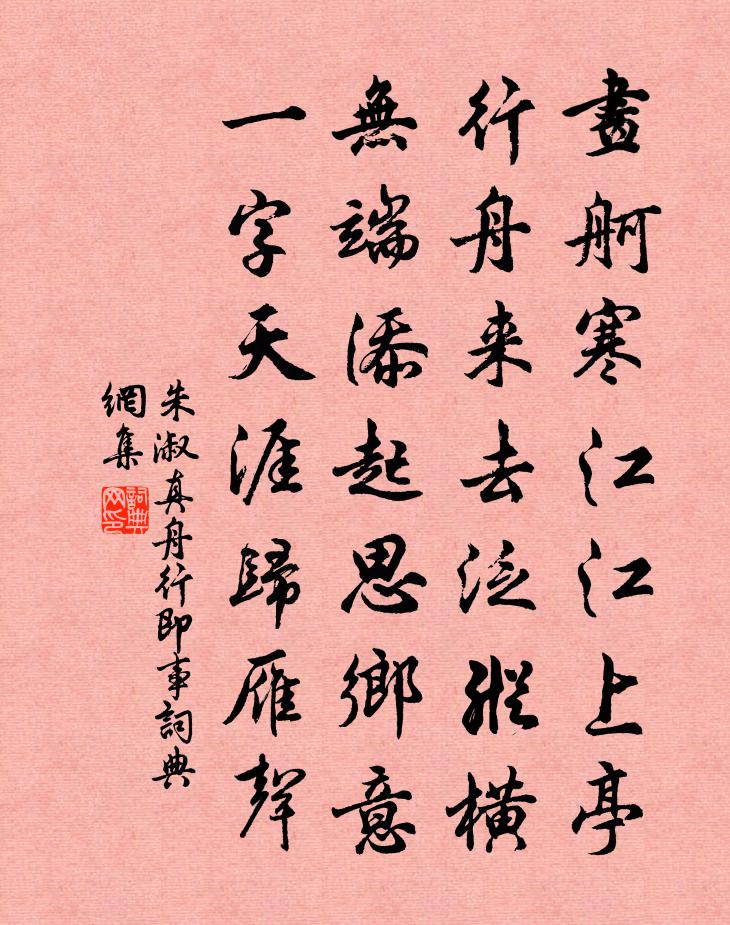 畫舸寒江江上亭
行舟来去泛縱橫
無端添起思鄉意
一字天涯歸雁聲
朱淑真舟行即事詞典
網集
詞典
网印